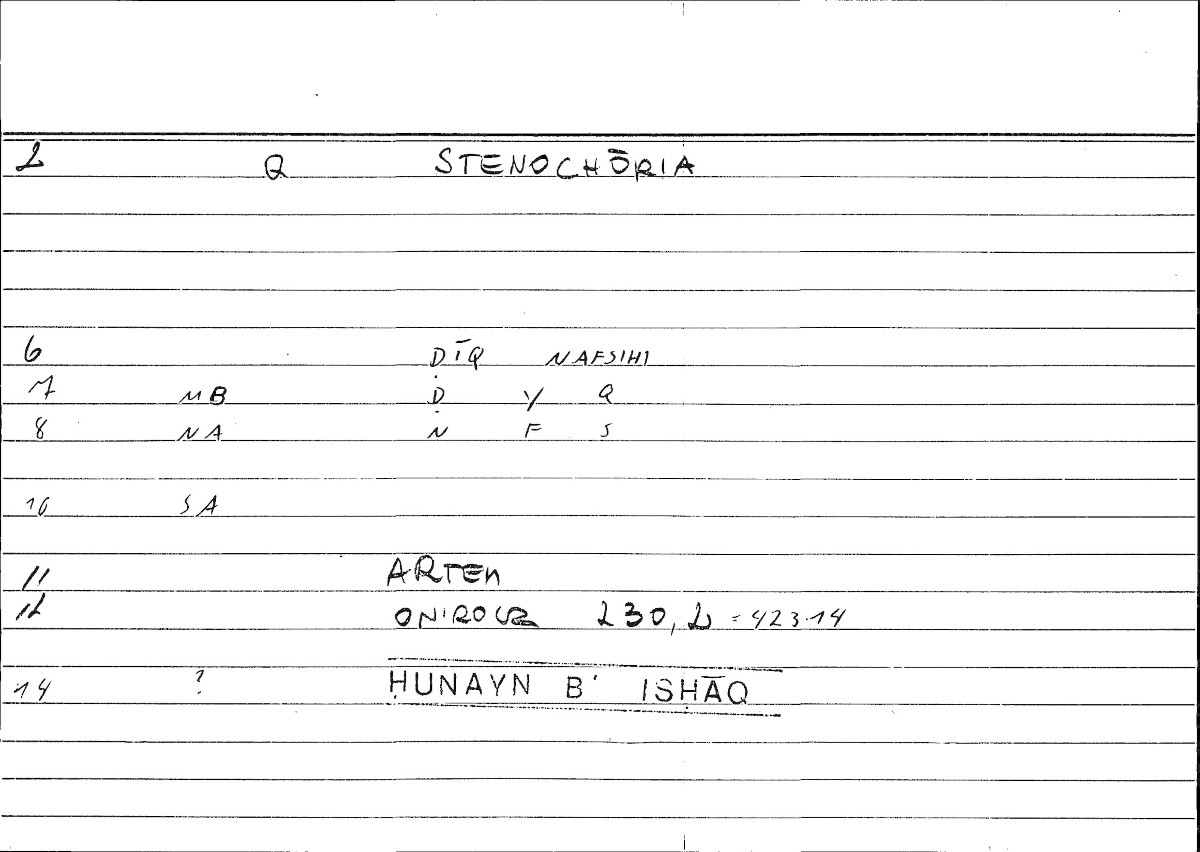 2 Q STENOCHŌRIA
6 ḌĪQ NAFSIHI
7 MB Ḍ Y Q
8 NA N F S
10 SA
11 ARTEM
12 ONIROCR 230, 2 = 423.14
14 ? ḤUNAYN B' ISḤĀQ